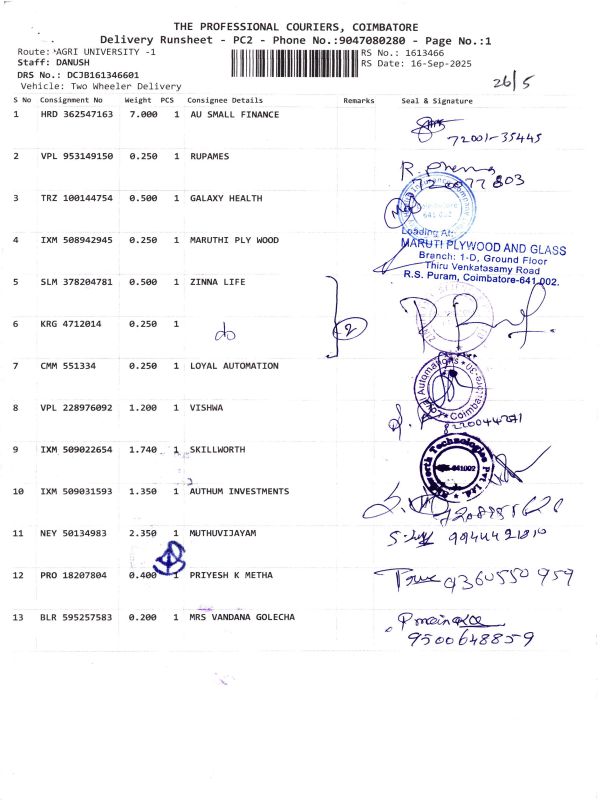 THE PROFESSIONAL COURIERS, COIMBATORE
Delivery Runsheet - PC2 - Phone No.:9047080280 - Page No.:1
Route: AGRI UNIVERSITY -1 RS No.: 1613466
Staff: DANUSH RS Date: 16-Sep-2025
DRS No.: DCJB161346601
Vehicle: Two Wheeler Delivery
26/5
S No Consignment No Weight PCS Consignee Details Remarks Seal & Signature
1 HRD 362547163 7.000 1 AU SMALL FINANCE
72001-35445
2 VPL 953149150 0.250 1 RUPAMES
3 TRZ 100144754 0.500 1 GALAXY HEALTH
641 002
4 IXM 508942945 0.250 1 MARUTHI PLY WOOD
Loading At:
MARUTI PLYWOOD AND GLASS
Branch: 1-D, Ground Floor
Thiru Venkatasamy Road
R.S. Puram, Coimbatore-641 002.
5 SLM 378204781 0.500 1 ZINNA LIFE
6 KRG 4712014 0.250 1 do 2
7 CMM 551334 0.250 1 LOYAL AUTOMATION
8 VPL 228976092 1.200 1 VISHWA
9 IXM 509022654 1.740 1 SKILLWORTH
Technologies Pvt Ltd.
641002
10 IXM 509031593 1.350 1 AUTHUM INVESTMENTS
11 NEY 50134983 2.350 1 MUTHUVIJAYAM
12 PRO 18207804 0.400 1 PRIYESH K METHA
9360550959
13 BLR 595257583 0.200 1 MRS VANDANA GOLECHA
9500648859